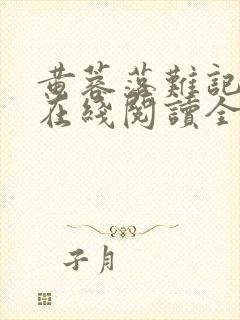 黄蓉落難記
在綫閱讀全
子月